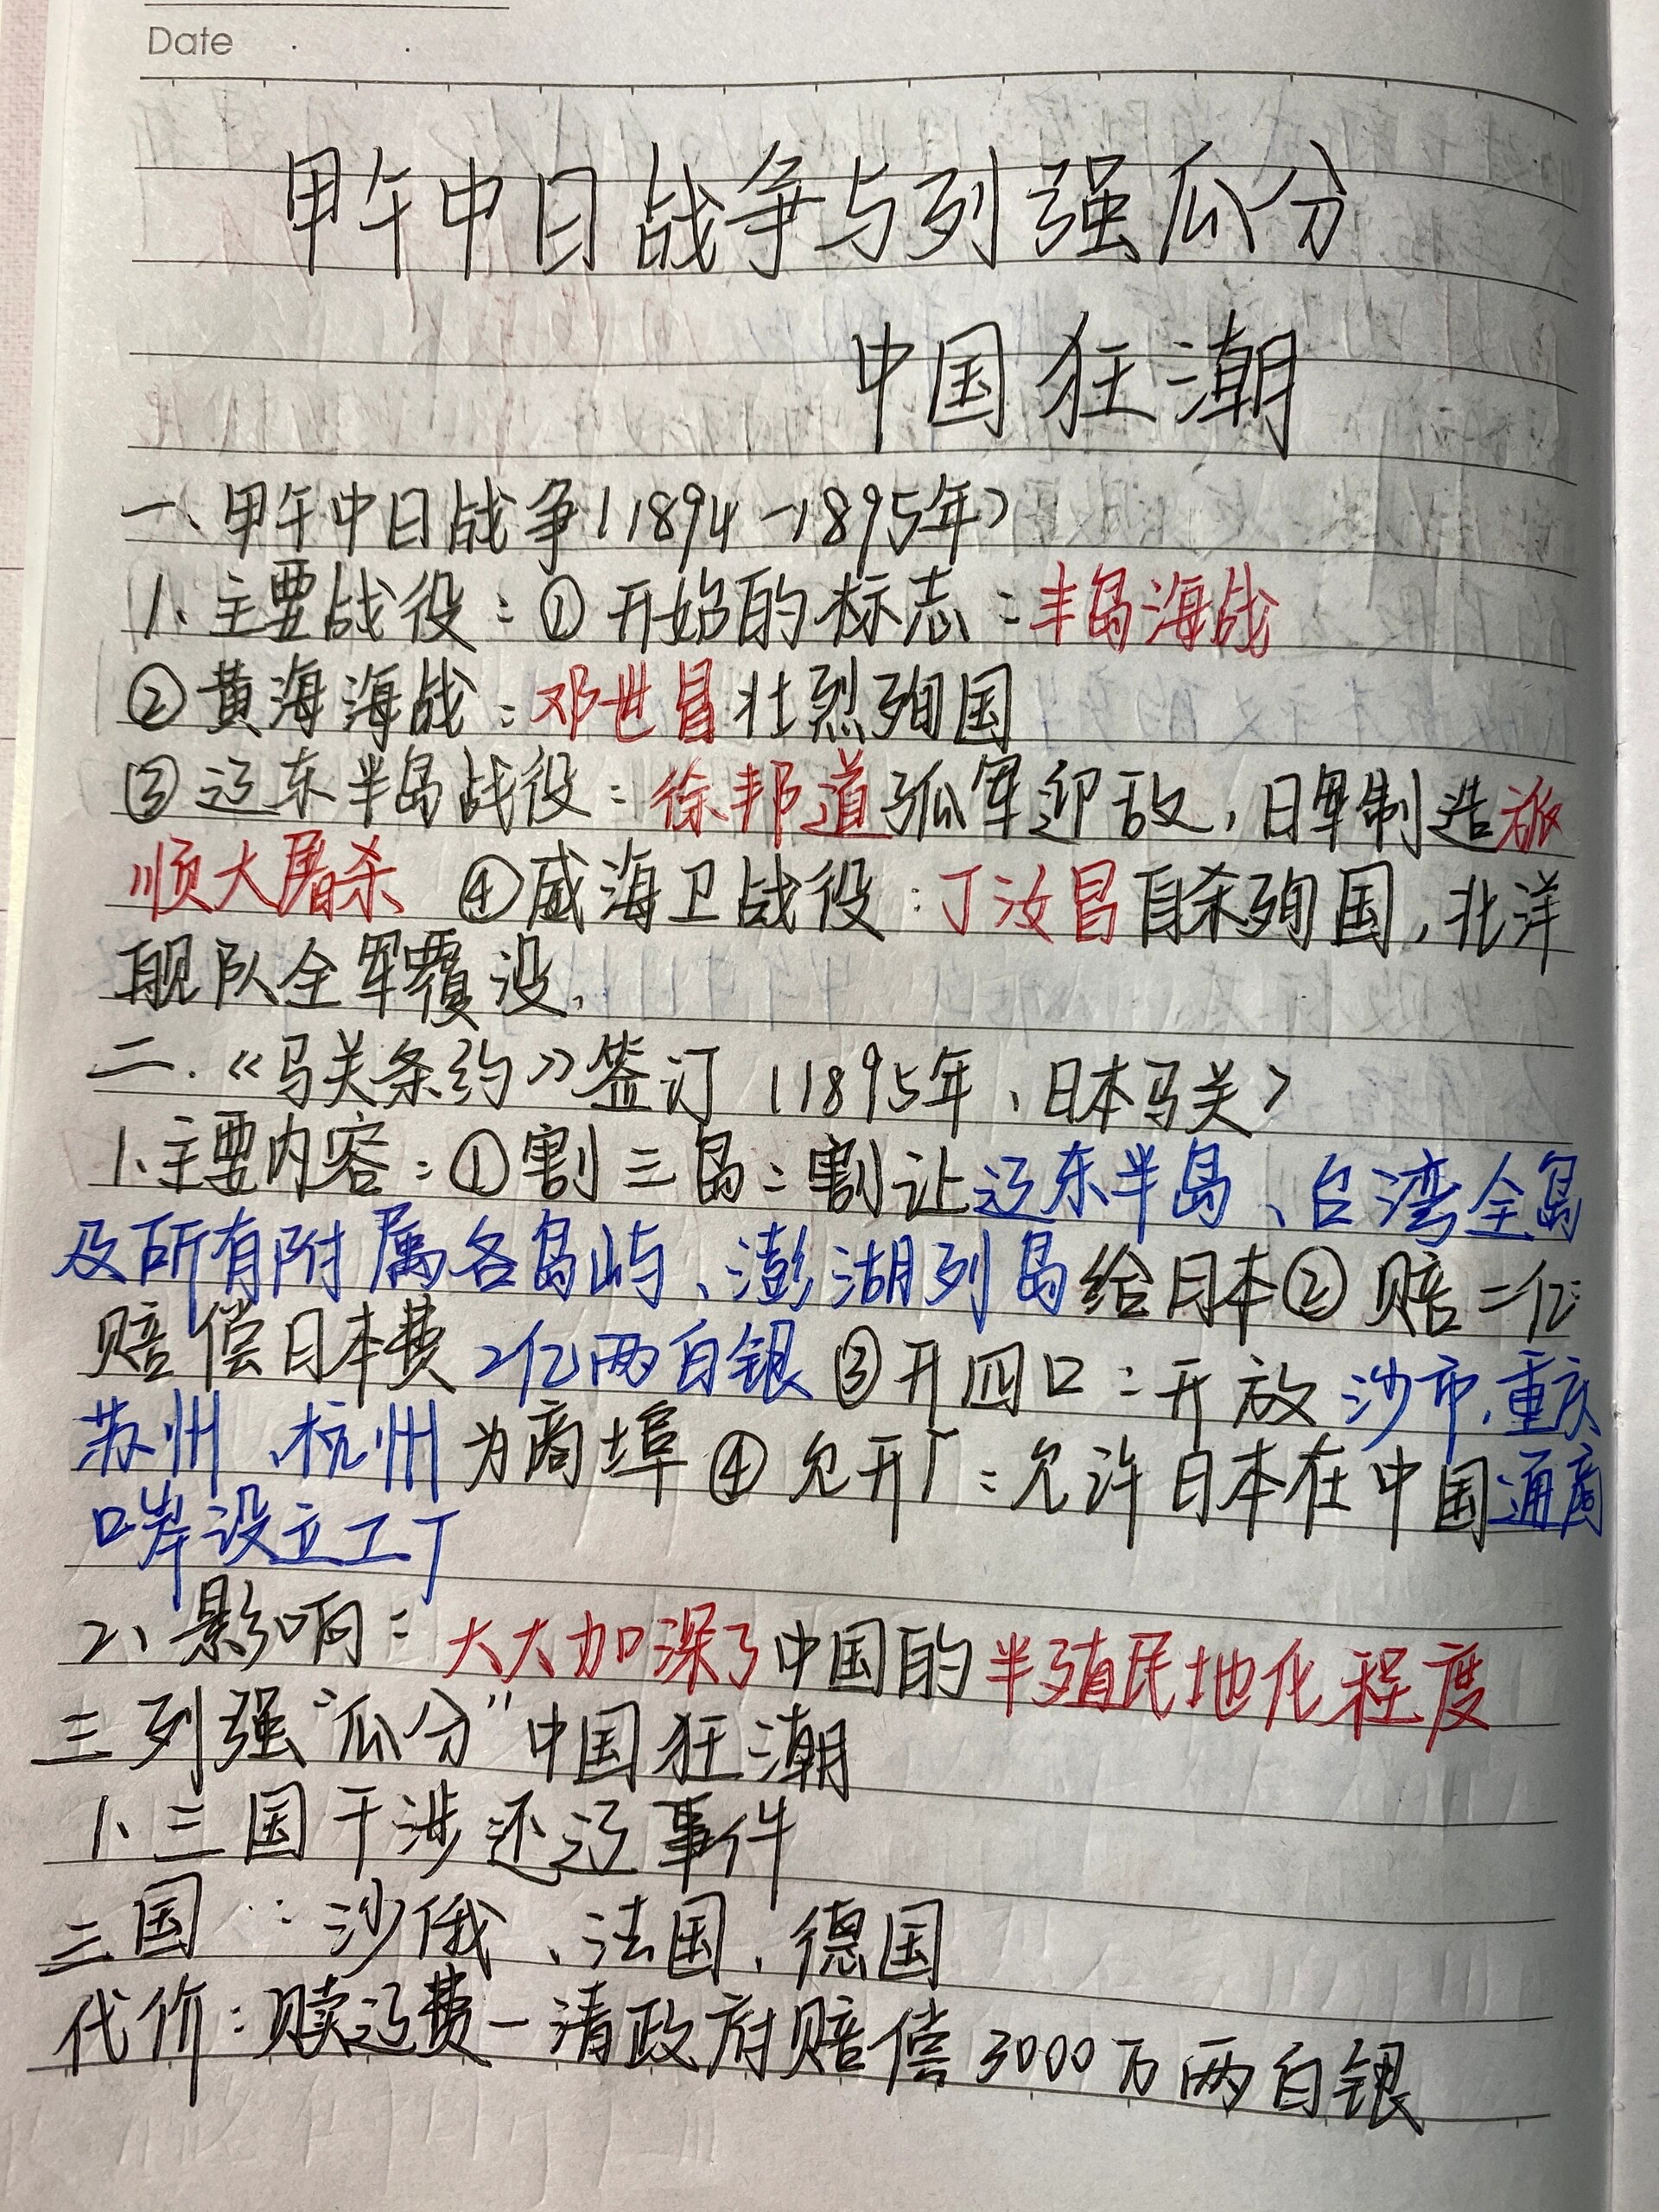 Date
甲午中日战争与列强瓜分
中国狂潮
一、甲午中日战争(1894-1895年)
1、主要战役:①开始的标志:丰岛海战
②黄海海战:邓世昌壮烈殉国
③辽东半岛战役:徐邦道孤军迎敌,日军制造旅
顺大屠杀 ④威海卫战役:丁汝昌自杀殉国,北洋
舰队全军覆没.
二.《马关条约》签订(1895年、日本马关)
1、主要内容:①割三岛:割让辽东半岛、台湾全岛
及所有附属各岛屿、澎湖列岛给日本②赔二亿:
赔偿日本费2亿两白银③开四口:开放沙市、重庆
苏州、杭州为商埠④允开厂:允许日本在中国通商
口岸设立工厂
2、影响:大大加深了中国的半殖民地化程度
三列强“瓜分”中国狂潮
1、三国干涉还辽事件
三国:沙俄、法国、德国
代价:赎辽费-清政府赔偿3000万两白银